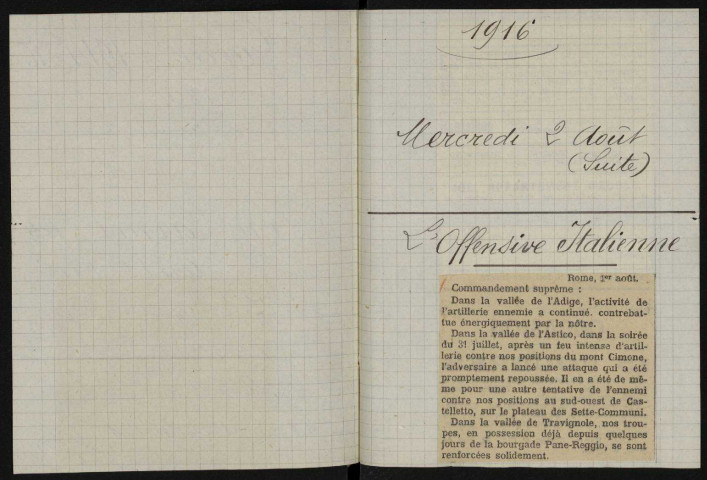 1916
Mercredi 2 Août
(Suite)
L'Offensive Italienne
Rome, 1er août.
Commandement suprême :
Dans la vallée de l'Adige, l'activité de
l'artillerie ennemie a continué. contrebat-
tue énergiquement par la nôtre.
Dans la vallée de l'Astico, dans la soirée
du 31 juillet, après un feu intense d'artil-
lerie contre nos positions du mont Cimone,
l'adversaire a lancé une attaque qui a été
promptement repoussée. Il en a été de mê-
me pour une autre tentative de l'ennemi
contre nos positions au sud-ouest de Cas-
telletto, sur le plateau des Sette-Communi.
Dans la vallée de Travignole, nos trou-
pes, en possession déjà depuis quelques
jours de la bourgade Pane-Reggio, se sont
renforcées solidement.